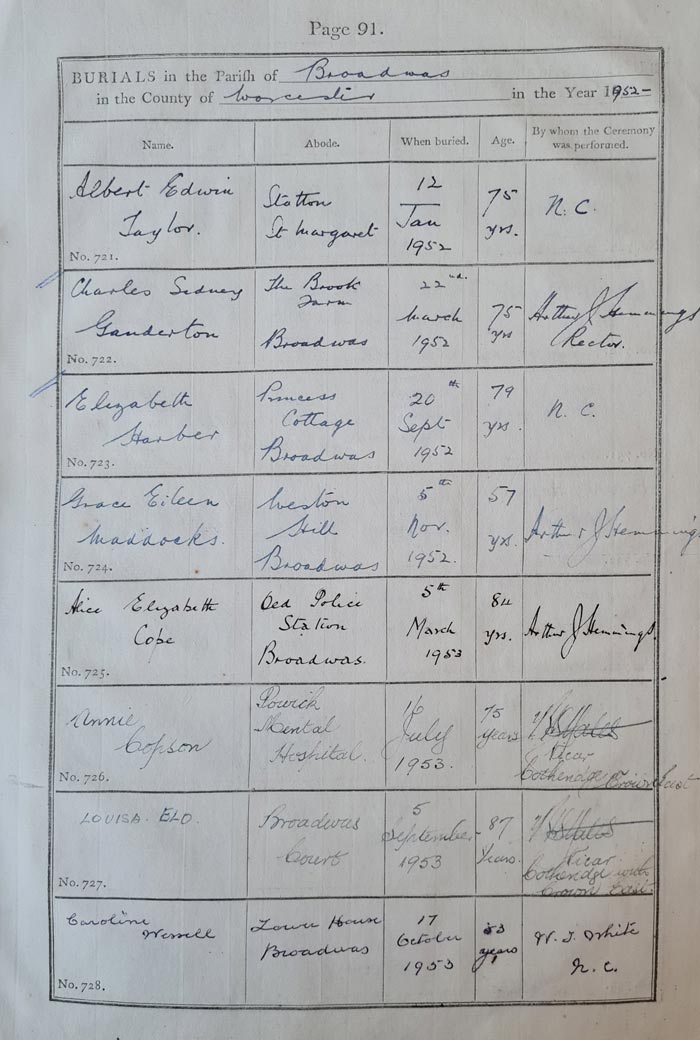 Page 91.
BURIALS in the Parish of Broadwas
in the County of Worcester in the Year 1952-
Name. Abode. When buried. Age. By whom the Ceremony was performed.
Albert Edwin
Taylor.
No. 721.
Statton
St Margaret
12
Jan
1952
75
yrs.
N. C.
Charles Sidney
Ganderton
No. 722.
The Brook
Farm
Broadwas
22nd.
March
1952
75
yrs
Arthur J Hemmings
Rector.
Elizabeth
Harber
No. 723.
Princess
Cottage
Broadwas
20th
Sept
1952
79
yrs.
N. C.
Grace Eileen
Maddocks.
No. 724.
Weston
Hill
Broadwas
5th
Nov.
1952.
57
yrs.
Arthur J Hemmings
Alice Elizabeth
Cope
No. 725.
Old Police
Station
Broadwas.
5th
March
1953
84
yrs.
Arthur J Hemmings.
Annie
Copson
No. 726.
Powick
Mental
Hospital.
16
July
1953.
75
years
Vicar
Cotheridge Crown East
LOUISA. ELD.
No. 727.
Broadwas
Court
5
September
1953
87
Years.
Vicar
Cotheridge with
Crown East
Caroline
No. 728.
Lower House
Broadwas
17
October
1953
years
W. J. White
N. C.